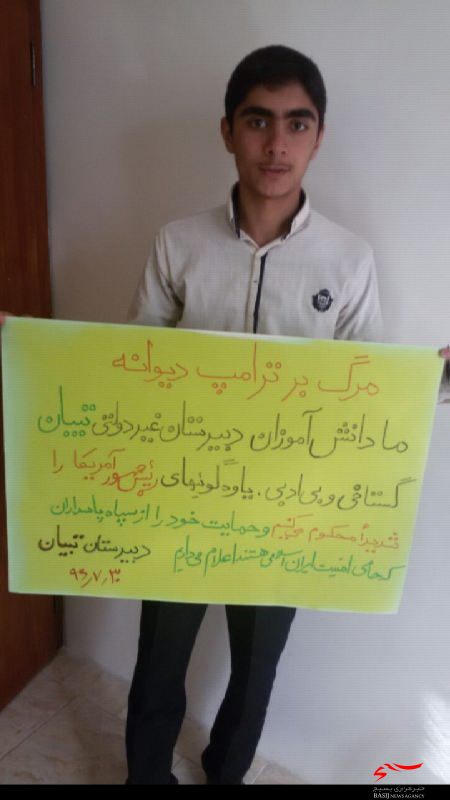 مرگ بر ترامپ دیوانه
ما دانش‌آموزان دبیرستان غیردولتی تبیان
گستاخی و بی ادبی. یاوه‌گوئیهای رئیس جمهور آمریکا را
شدیداً محکوم می‌کنیم و حمایت خود را از سپاه پاسداران
که حامی امنیت ایران اسلامی هستند اعلام می‌داریم
دبیرستان تبیان
۹۶٫۷٫۳۰
خبرگزاری بسیج
BASIJ NEWS AGANCY